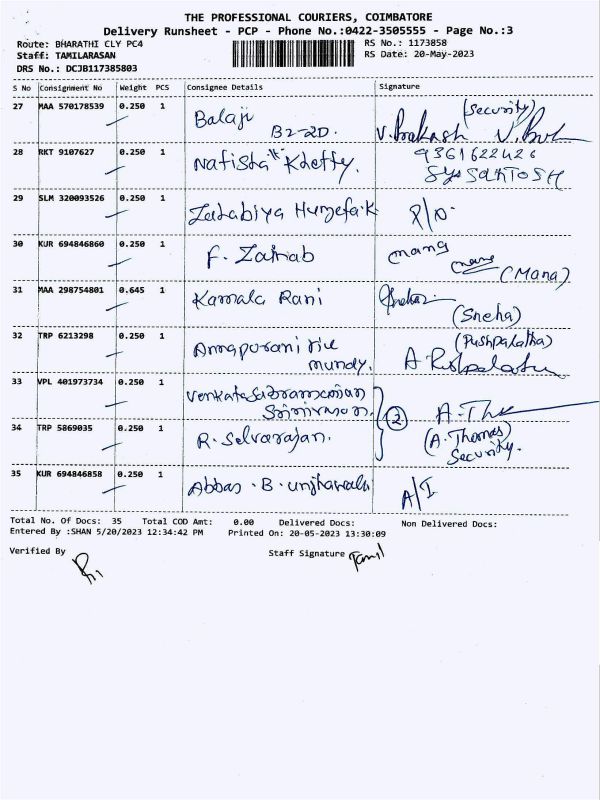 THE PROFESSIONAL COURIERS, COIMBATORE
Delivery Runsheet - PCP - Phone No.:0422-3505555 - Page No.:3
Route: BHARATHI CLY PC4 RS No.: 1173858
Staff: TAMILARASAN RS Date: 20-May-2023
DRS No.: DCJB117385803
S No Consignment No Weight PCS Consignee Details Signature
27 MAA 570178539 0.250 1 Balaji (Security)
B2-2D. V. Prakash
28 RKT 9107627 0.250 1 Nafisha Khetty. 9361622426
SANTOSH
29 SLM 320093526 0.250 1 Zahabiya Huzefa.K
30 KUR 694846860 0.250 1 F. Zainab mana
(Mana)
31 MAA 298754801 0.645 1 Kamala Rani Sneha
(Sneha)
32 TRP 6213298 0.250 1 Annapurani rice (Pushpalatha)
mundy. A. Pushpalatha
33 VPL 401973734 0.250 1 Venkatasubramanian
2 A. Tho
34 TRP 5869035 0.250 1 R. Selvarajan. (A. Thomas)
Security.
35 KUR 694846858 0.250 1 Abbas. B. unjhawala A/I
Total No. Of Docs: 35 Total COD Amt: 0.00 Delivered Docs: Non Delivered Docs:
Entered By :SHAN 5/20/2023 12:34:42 PM Printed On: 20-05-2023 13:30:09
Verified By Staff Signature Tamil